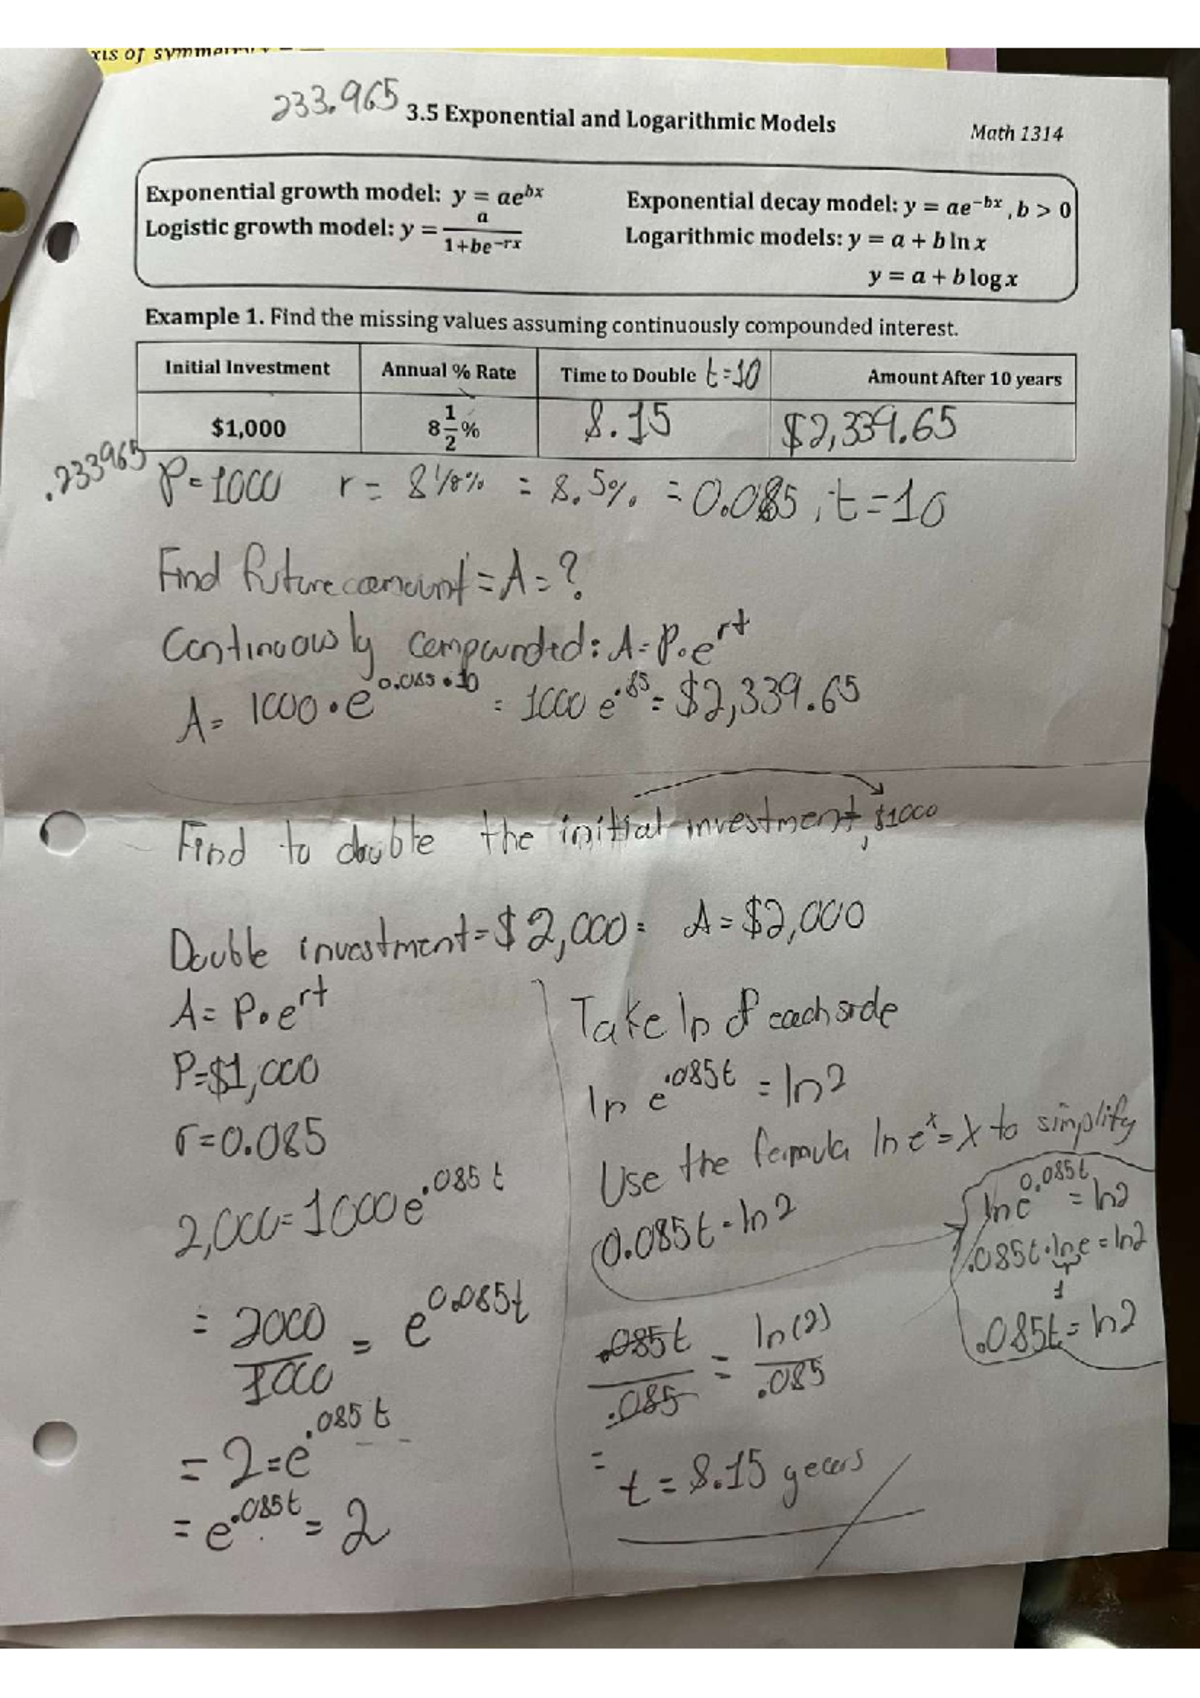 xis of symmetry
233.965 3.5 Exponential and Logarithmic Models
Math 1314
Exponential growth model: y = ae^{bx}
Exponential decay model: y = ae^{-bx}, b > 0
Logistic growth model: y = a/(1+be^{-rx})
Logarithmic models: y = a + b ln x
y = a + b log x
Example 1. Find the missing values assuming continuously compounded interest.
Initial Investment Annual % Rate Time to Double t=10 Amount After 10 years
$1,000 8 1/2 % 8.15 $2,339.65
.233965
P=1000 r = 8 1/8% = 8.5% = 0.085, t=10
Find future amount = A = ?
Continuously compounded: A = P•e^{rt}
A = 1000•e^{0.085•10} = 1000 e^{.85} = $2,339.65
Find to double the initial investment, $1000
Double investment = $2,000 = A = $2,000
A = P•e^{rt}
P=$1,000
r=0.085
2,000=1000e^{.085t}
= 2000/1000 = e^{0.085t}
= 2=e^{.085t}
= e^{.085t} = 2
Take ln of each side
ln e^{.085t} = ln2
Use the formula ln e^x = x to simplify
0.085t = ln2
ln e^{0.085t} = ln2
.085t•ln e = ln2
1
.085t = ln2
.085t/.085 = ln(2)/.085
= t = 8.15 years